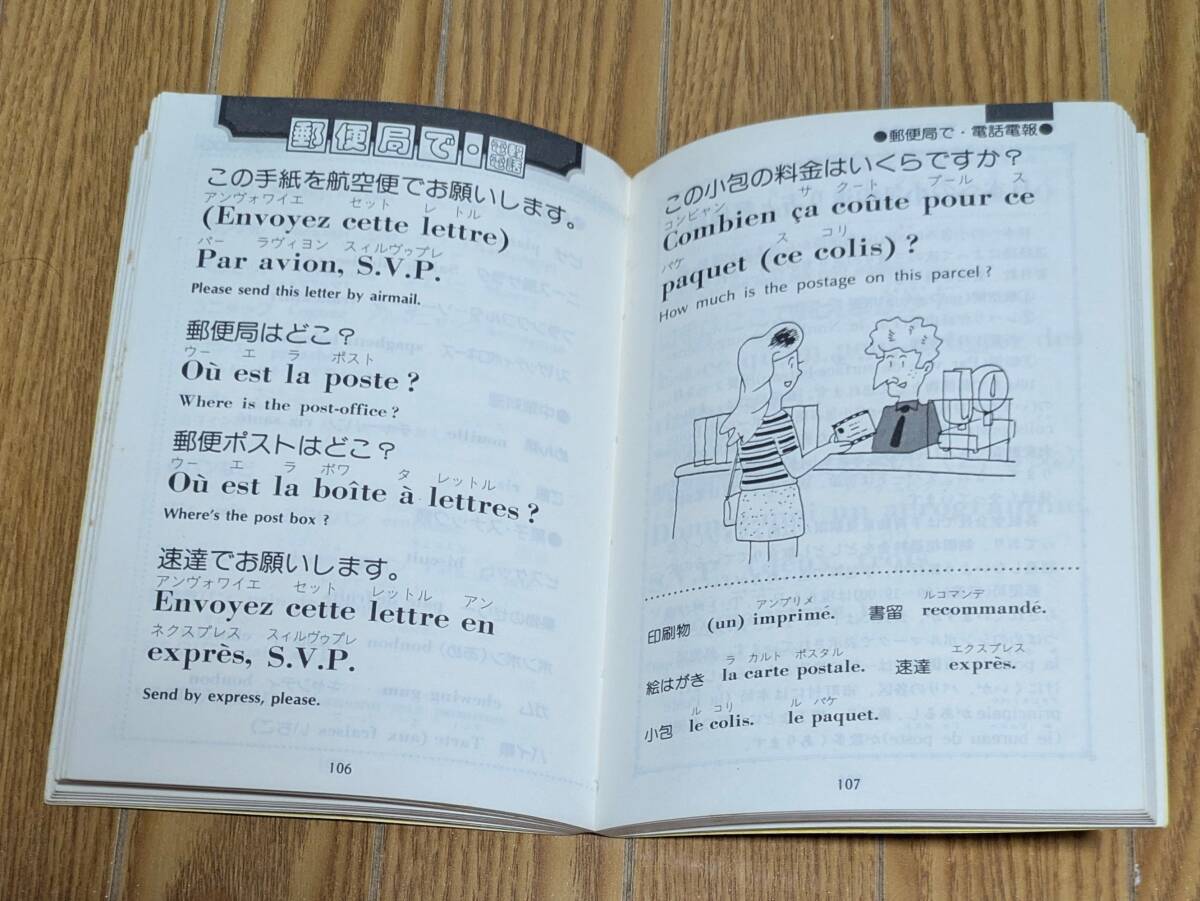 郵便局で・電話電報
この手紙を航空便でお願いします。
アンヴォワイエ セット レトル
(Envoyez cette lettre)
パー ラヴィヨン スィルヴゥプレ
Par avion, S.V.P.
Please send this letter by airmail.
郵便局はどこ？
ウー エ ラ ポスト
Où est la poste ?
Where is the post-office ?
郵便ポストはどこ？
ウー エ ラ ボワ タ レットル
Où est la boîte à lettres ?
Where's the post box ?
速達でお願いします。
アンヴォワイエ セット レットル アン
Envoyez cette lettre en
ネクスプレス スィルヴゥプレ
exprès, S.V.P.
Send by express, please.
106
●郵便局で・電話電報●
この小包の料金はいくらですか？
コンビヤン サ クート プール ス
Combien ça coûte pour ce
パケ ス コリ
paquet (ce colis) ?
How much is the postage on this parcel ?
印刷物 (un) imprimé. アンプリメ 書留 recommandé. ルコマンデ
絵はがき la carte postale. ラ カルト ポスタル 速達 exprès. エクスプレス
小包 le colis. ル コリ le paquet. ル パケ
107